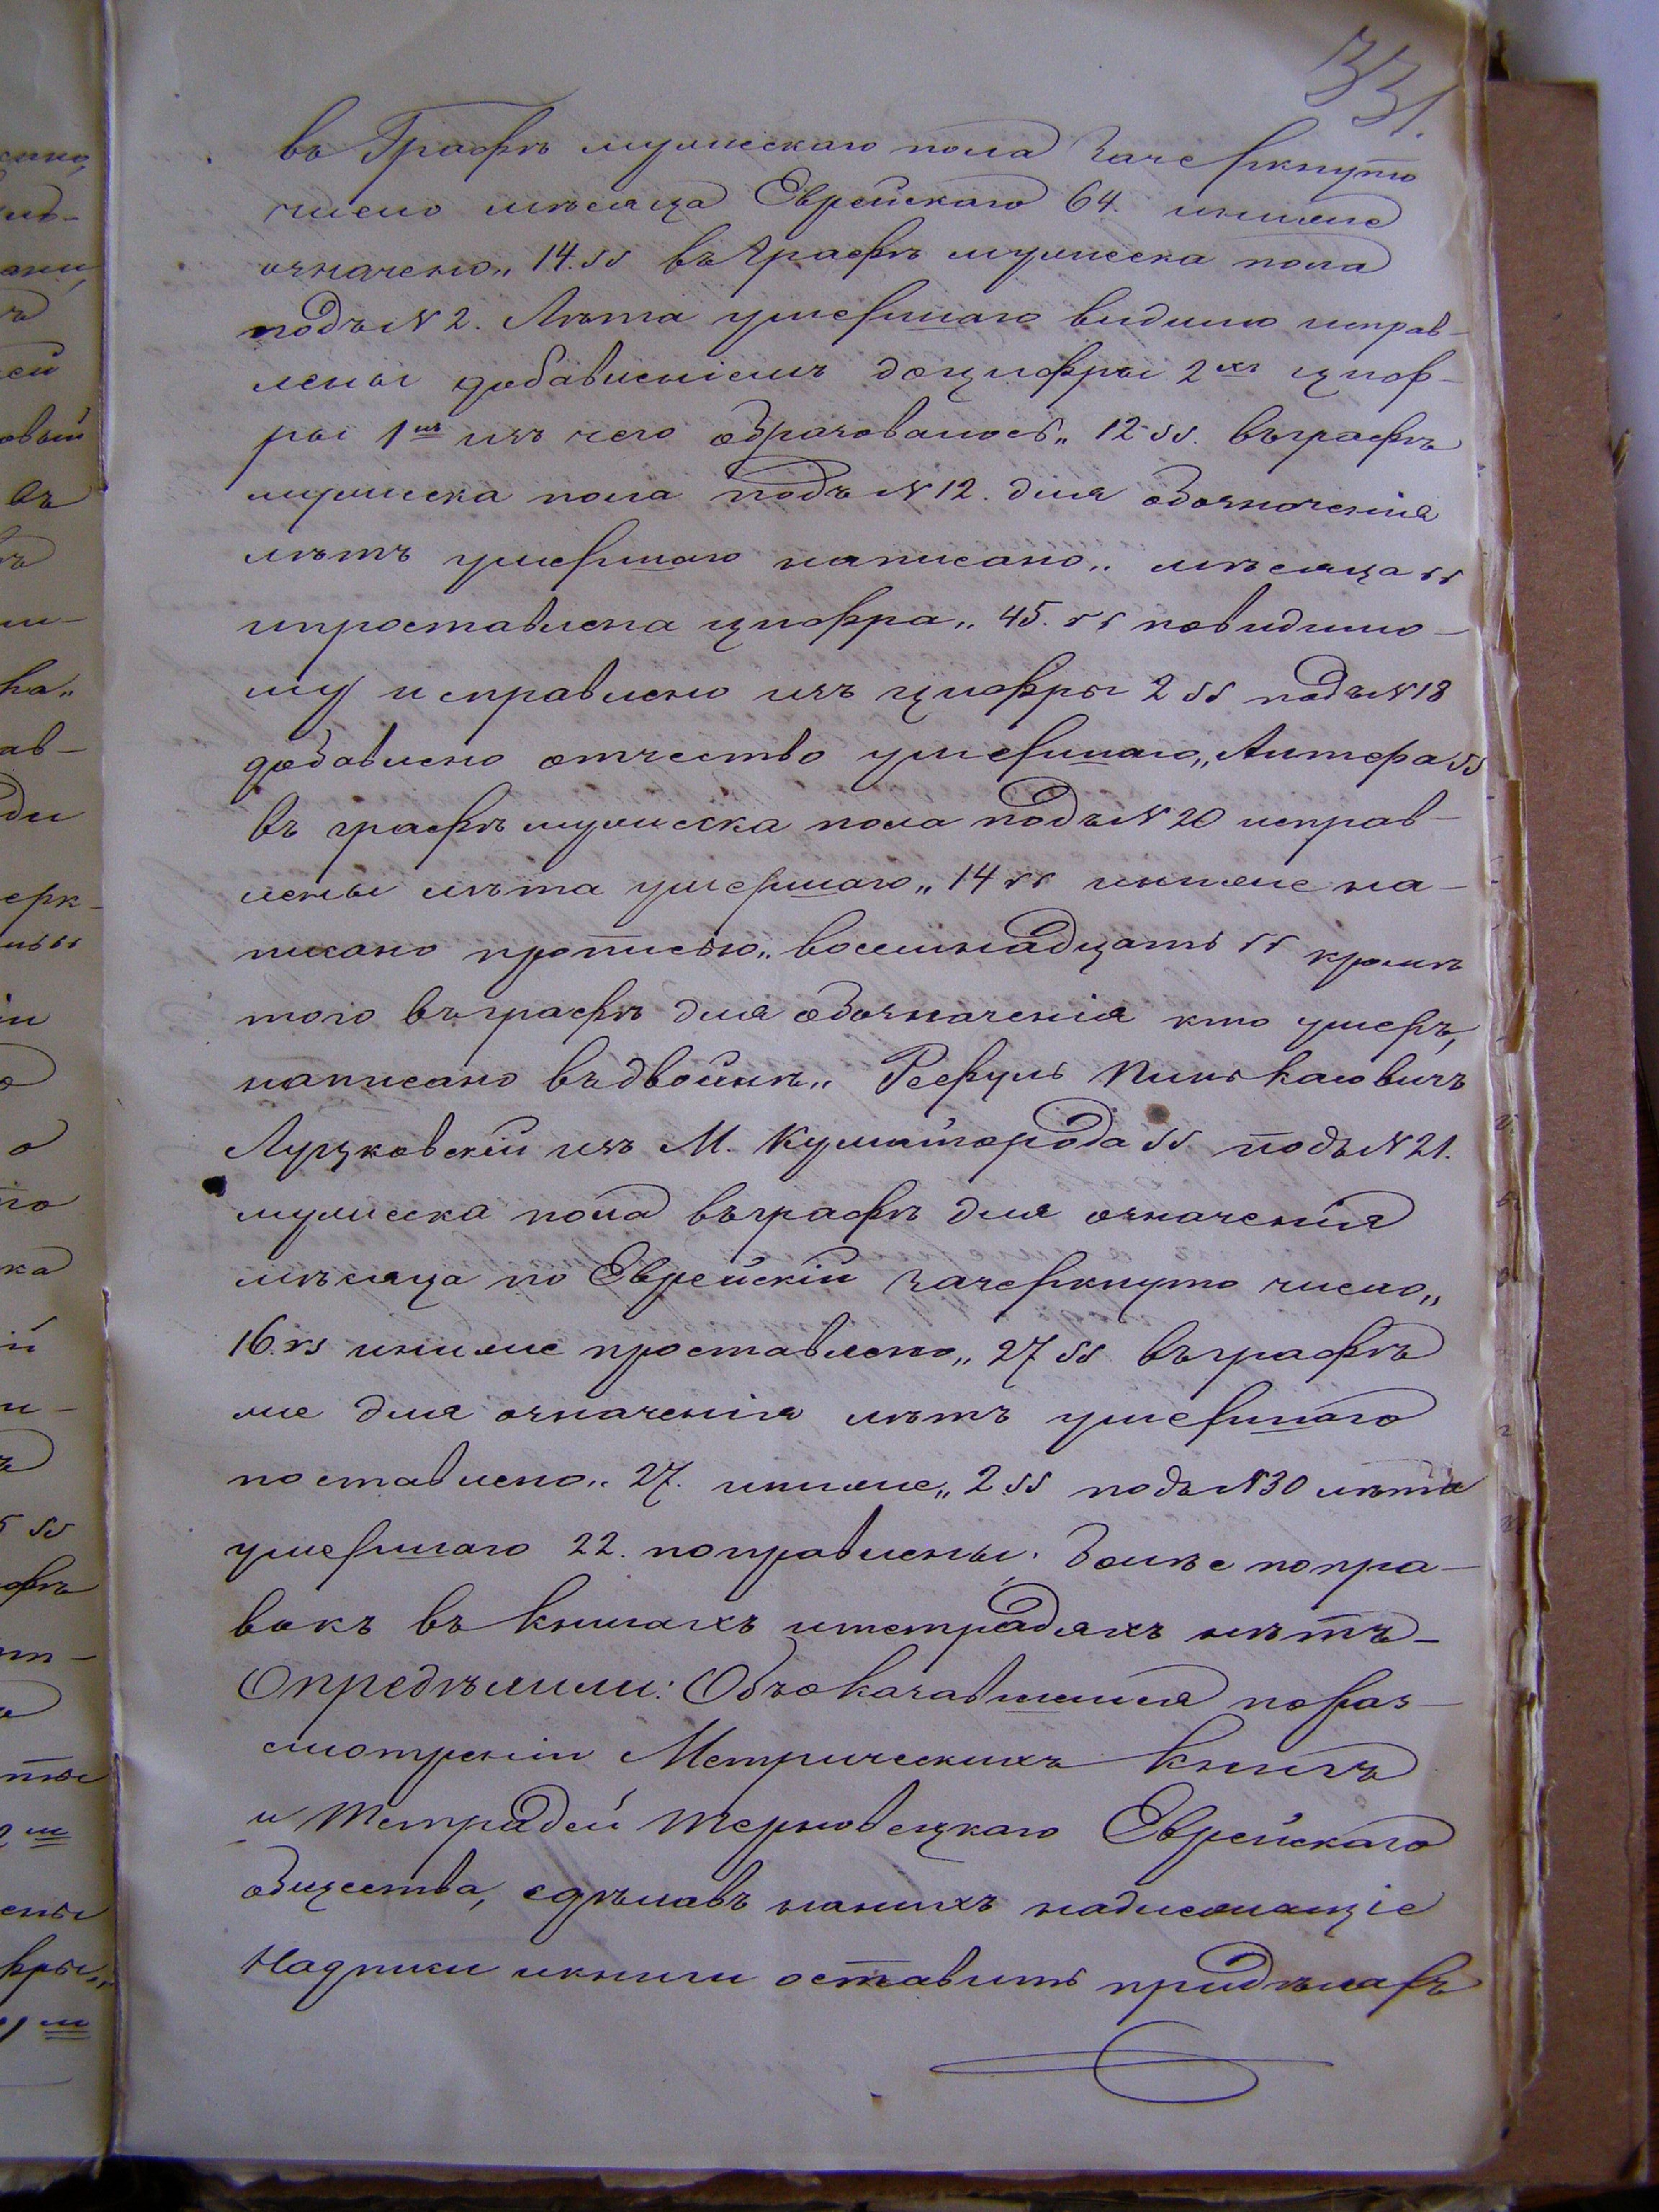 331.
въ Графѣ мужескаго пола Зачеркнуто
число мѣсяца Еврейскаго 64. иниже
означено „14.“ въ Графѣ мужеска пола
подъ № 2. Лѣта умершаго видимо исправ-
лены добавленіемъ доцифры 2хъ циф-
ры 1цъ изъ чего образовалось „12“. въ графѣ
мужеска пола подъ № 12. для обозначенія
лѣтъ умершаго написано „мѣсяца“
ипроставлена цифра „45.“ повидимо-
му исправлено изъ цифры 2“ подъ № 18
добавлено отчество умершаго „Антера“
въ графѣ мужеска пола подъ № 20 исправ-
лены лѣта умершаго „14“ иниже на-
писано прописью „восемнадцать“ кромѣ
того въ графѣ для обозначенія кто умеръ,
написано въдвойнѣ „Рефуль Пинькасовичъ
Луцковскій изъ М. Кульматорода“ подъ № 21.
мужеска пола въ графѣ для означенія
мѣсяца по Еврейскій зачеркнуто число „
16.“ иниже проставлено „27“ въ графѣ
же для означенія лѣтъ умершаго
поставлено „27. иниже „2“ подъ № 30 лѣта
умершаго 22. поправлены. Болѣе попра-
вокъ въ книгахъ итетрадяхъ нѣтъ-
Опредѣлили: Объоказавшемся пораз-
смотреніи Метрическихъ книгъ
и Тетрадей Терновецкаго Еврейскаго
общества, сдѣлавъ наничъ надлежащіе
Надписи икниги оставить придѣлахъ